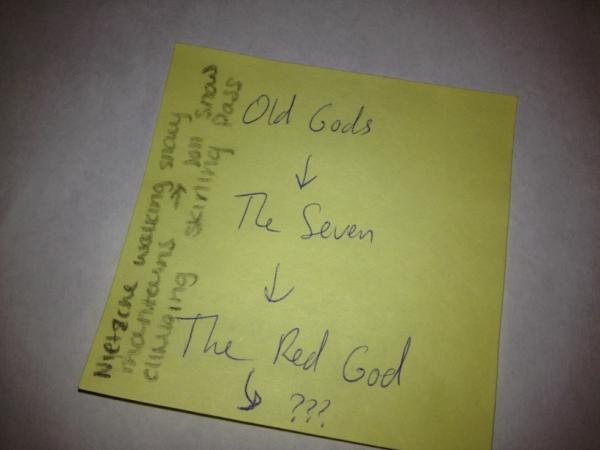 Old Gods
↓
The Seven
↓
The Red God
↳ ???
Nietzche walking snowy
mountains → Jon snow
climbing skirling pass